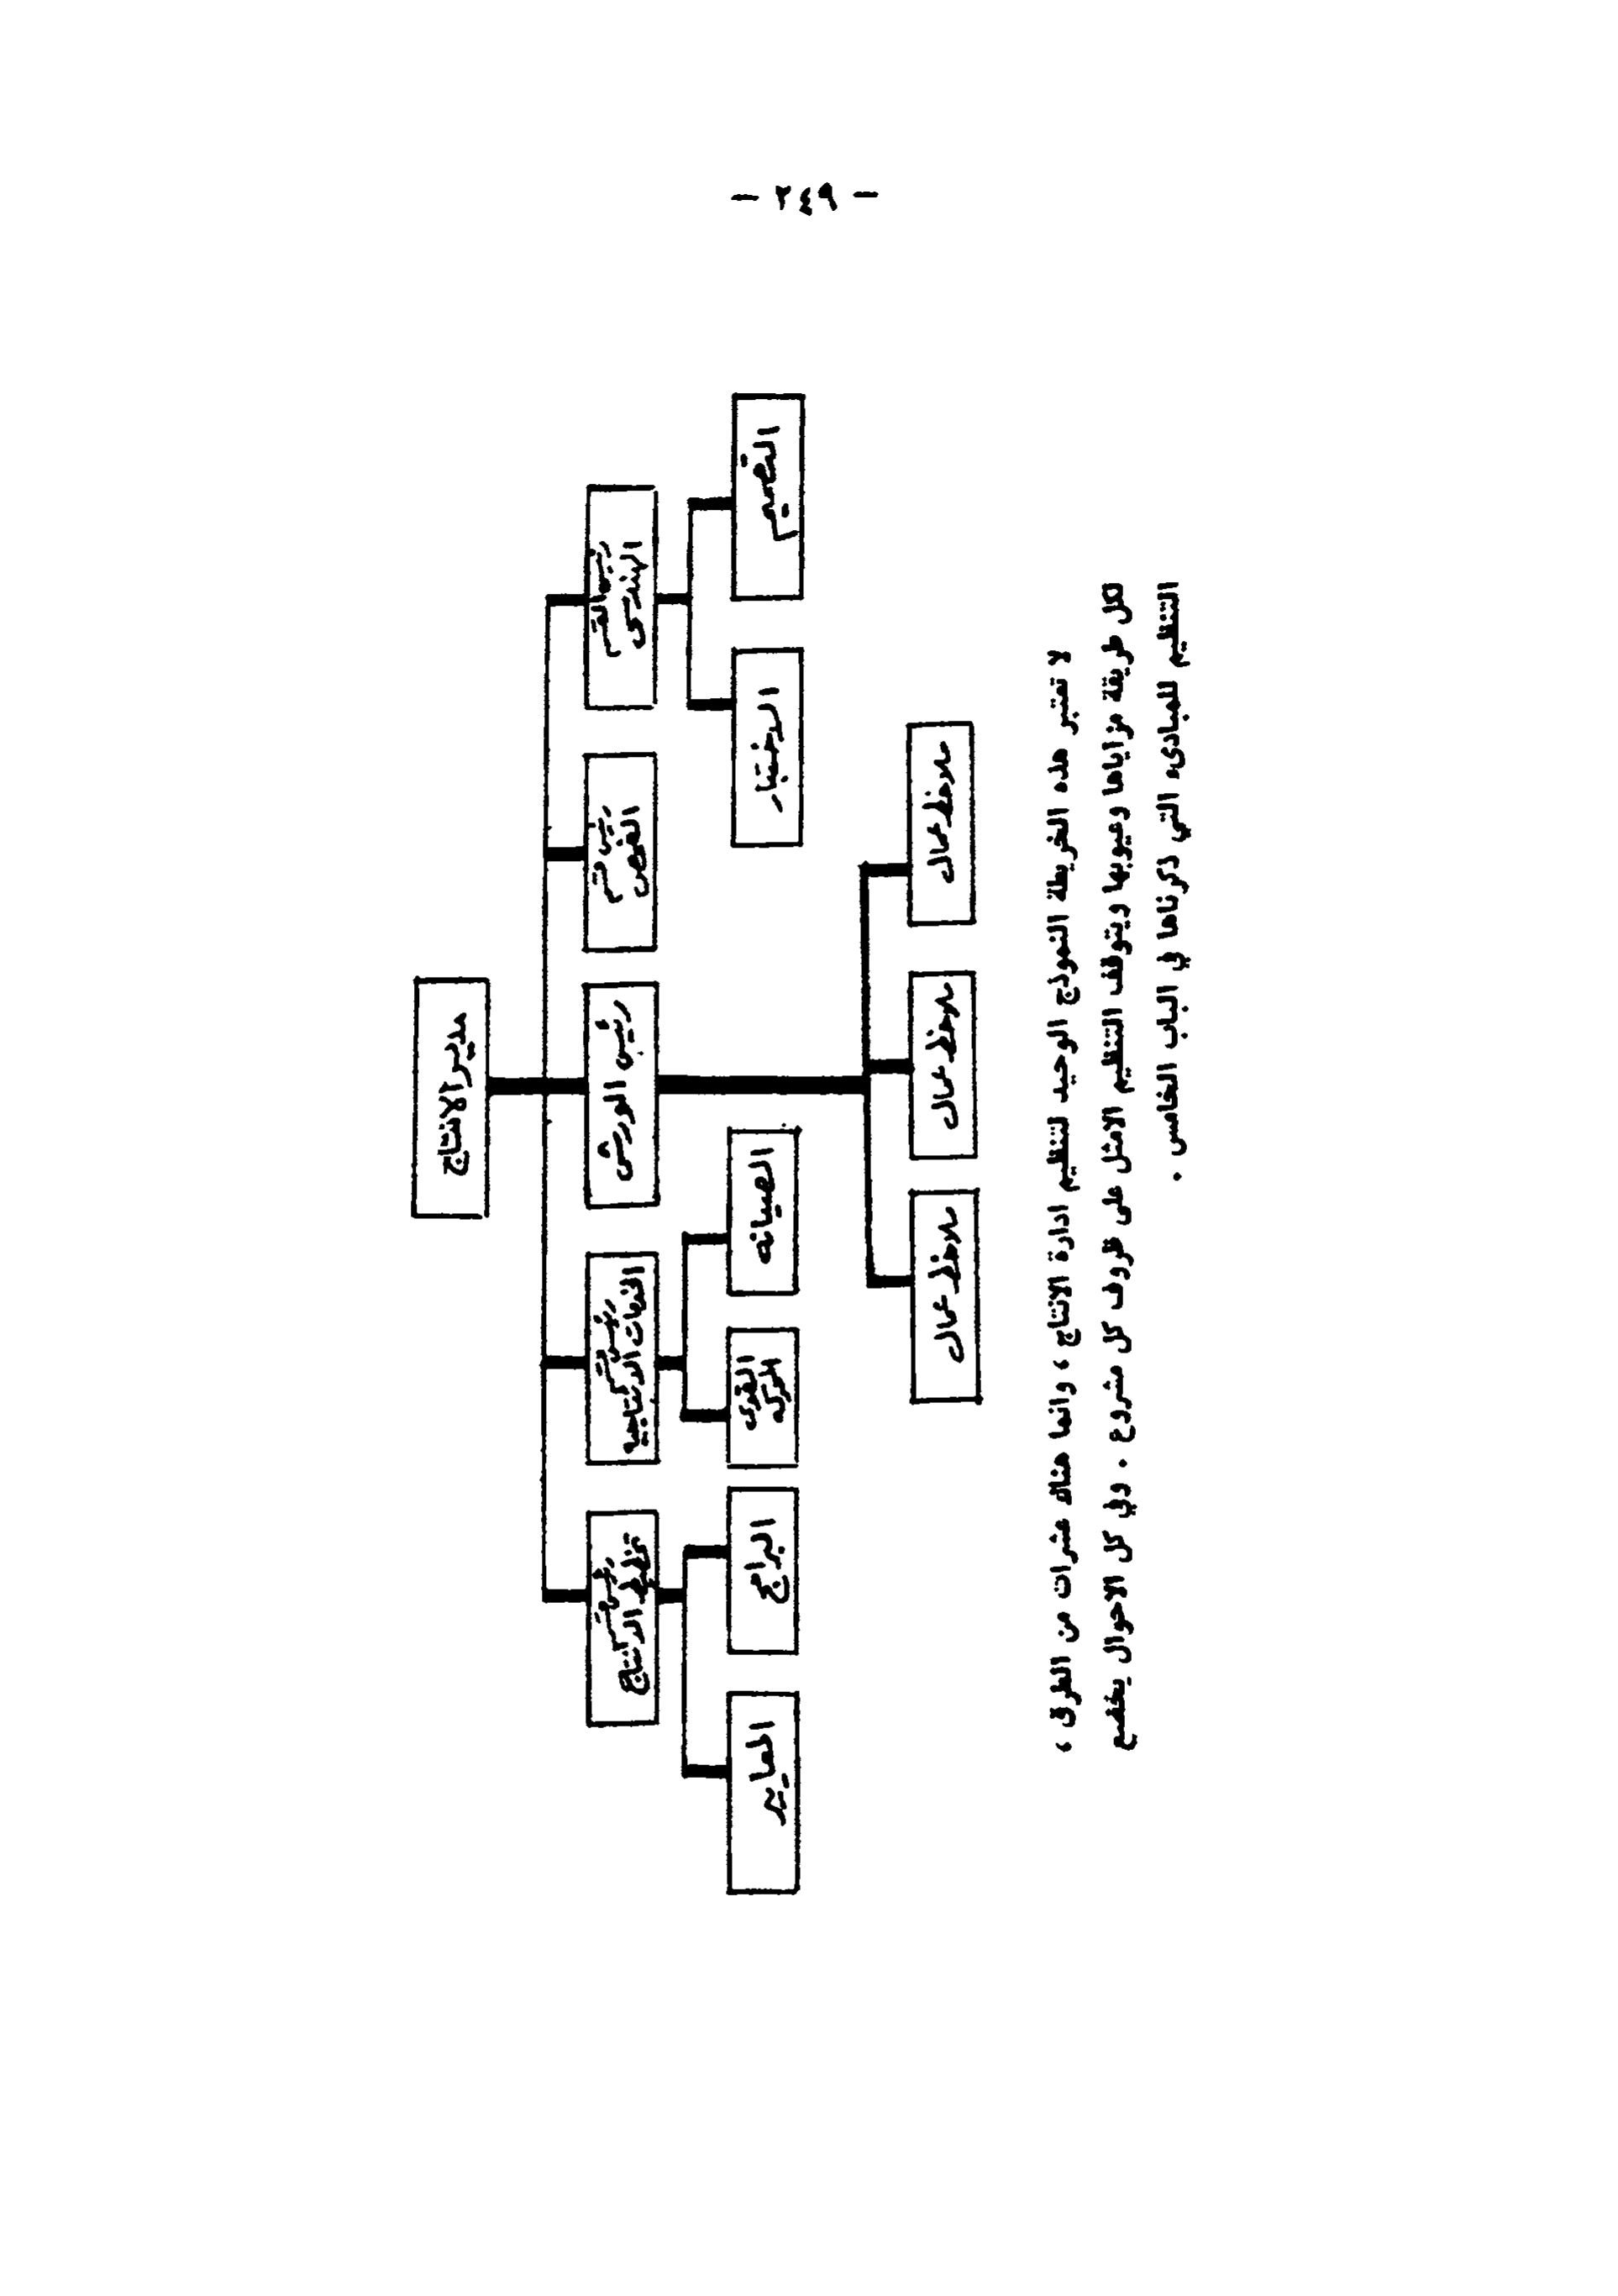 — ٢٤٩ —
مدير الانتاج
رئيس القسم
الهندسى
رئيس قسم
الفحص
رئيس الورش
رئيس قسم
الخدمات الانتاجيه
رئيس قسم
تخطيط الانتاج
التصميم
الاختبار
الصيانه
القوى
المحركه
البرامج
المعايير
ملاحظ عمال
ملاحظ عمال
ملاحظ عمال
لا تعتبر هذه الخريطة النموذج الوحيد لتنظيم ادارة الانتاج ، وانما هناك عشرات من الطرق ،
لكل طريقة مزاياها وعيوبها ويتوقف التنظيم الامثل على ظروف كل مشروع . وفي كل الاحوال يخضع
التنظيم للمبادىء التي ذكرناها في الباب الخامس .